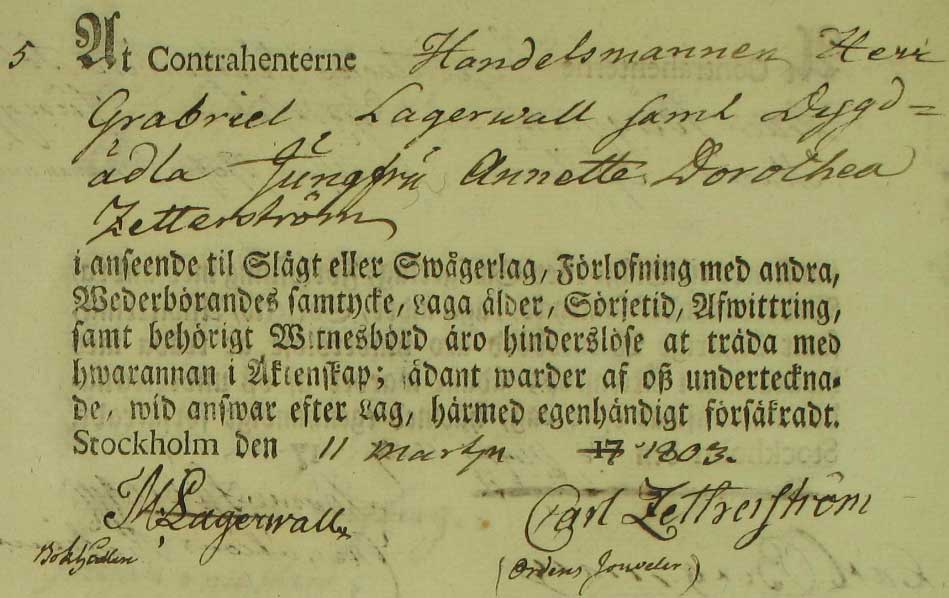 5 At Contrahenterne Handelsmannen Herr
Grabriel Lagerwall samt Dygd=
ädla Jungfru Annette Dorothea
Zetterström
i anseende til Slägt eller Swågerlag, Förlofning med andra,
Wederbörandes samtycke, Laga ålder, Sörjetid, Afwittring,
samt behörigt Witnesbörd äro hinderslöse at träda med
hwarannan i Äktenskap; sådant warder af oß underteckna-
de, wid answar efter Lag, härmed egenhändigt försäkradt.
Stockholm den 11 Martii 17 1803.
Lagerwall Carl Zetherström
(Ordens Jouveler)